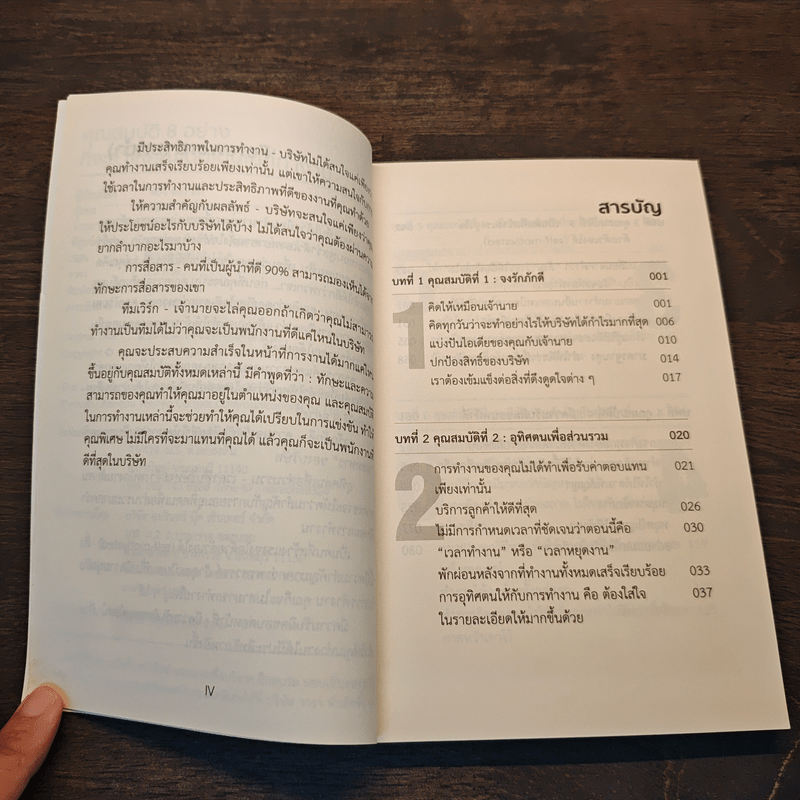 มีประสิทธิภาพในการทำงาน - บริษัทไม่ได้สนใจแค่เพียง
คุณทำงานเสร็จเรียบร้อยเพียงเท่านั้น แต่เขาให้ความสนใจกับการ
ใช้เวลาในการทำงานและประสิทธิภาพที่ดีของงานที่คุณทำด้วย
ให้ความสำคัญกับผลลัพธ์ - บริษัทจะสนใจแค่เพียงว่าคุณ
ให้ประโยชน์อะไรกับบริษัทได้บ้าง ไม่ได้สนใจว่าคุณต้องผ่านความ
ยากลำบากอะไรมาบ้าง
การสื่อสาร - คนที่เป็นผู้นำที่ดี 90% สามารถมองเห็นได้จาก
ทักษะการสื่อสารของเขา
ทีมเวิร์ก - เจ้านายจะไล่คุณออกถ้าเกิดว่าคุณไม่สามารถ
ทำงานเป็นทีมได้ไม่ว่าคุณจะเป็นพนักงานที่ดีแค่ไหนในบริษัท
คุณจะประสบความสำเร็จในหน้าที่การงานได้มากแค่ไหน
ขึ้นอยู่กับคุณสมบัติทั้งหมดเหล่านี้ มีคำพูดที่ว่า : ทักษะและความ
สามารถของคุณทำให้คุณมาอยู่ในตำแหน่งของคุณ และคุณสมบัติ
ในการทำงานเหล่านี้จะช่วยทำให้คุณได้เปรียบในการแข่งขัน ทำให้
คุณพิเศษ ไม่มีใครที่จะมาแทนที่คุณได้ แล้วคุณก็จะเป็นพนักงานที่
ดีที่สุดในบริษัท
IV
สารบัญ
บทที่ 1 คุณสมบัติที่ 1 : จงรักภักดี 001
1
คิดให้เหมือนเจ้านาย 001
คิดทุกวันว่าจะทำอย่างไรให้บริษัทได้กำไรมากที่สุด 006
แบ่งปันไอเดียของคุณกับเจ้านาย 010
ปกป้องสิทธิ์ของบริษัท 014
เราต้องเข้มแข็งต่อสิ่งที่ดึงดูดใจต่าง ๆ 017
บทที่ 2 คุณสมบัติที่ 2 : อุทิศตนเพื่อส่วนรวม 020
2
การทำงานของคุณไม่ได้ทำเพื่อรับค่าตอบแทน 021
เพียงเท่านั้น
บริการลูกค้าให้ดีที่สุด 026
ไม่มีการกำหนดเวลาที่ชัดเจนว่าตอนนี้คือ 030
“เวลาทำงาน” หรือ “เวลาหยุดงาน”
พักผ่อนหลังจากที่ทำงานทั้งหมดเสร็จเรียบร้อย 033
การอุทิศตนให้กับการทำงาน คือ ต้องใส่ใจ 037
ในรายละเอียดให้มากขึ้นด้วย